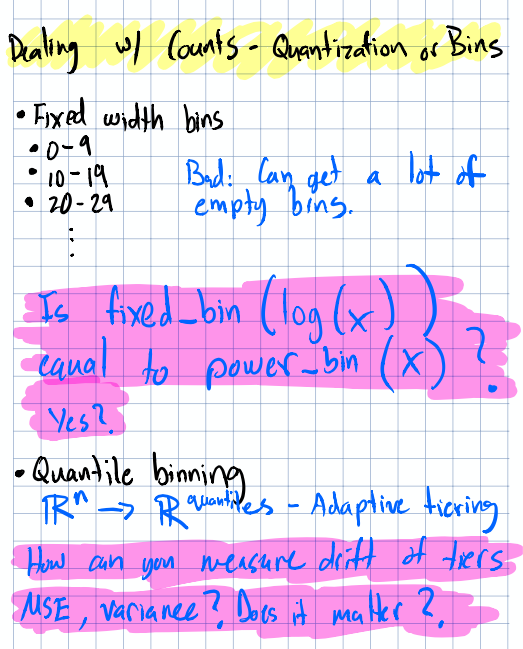 Dealing w/ Counts - Quantization or Bins
• Fixed width bins
• 0-9
• 10-19
• 20-29
⋮
Bad: Can get a lot of
empty bins.
Is fixed_bin (log(x))
equal to power_bin (x)?
Yes?
• Quantile binning
ℝⁿ → ℝ^quantiles - Adaptive tiering
How can you measure drift of tiers
MSE, variance? Does it matter?